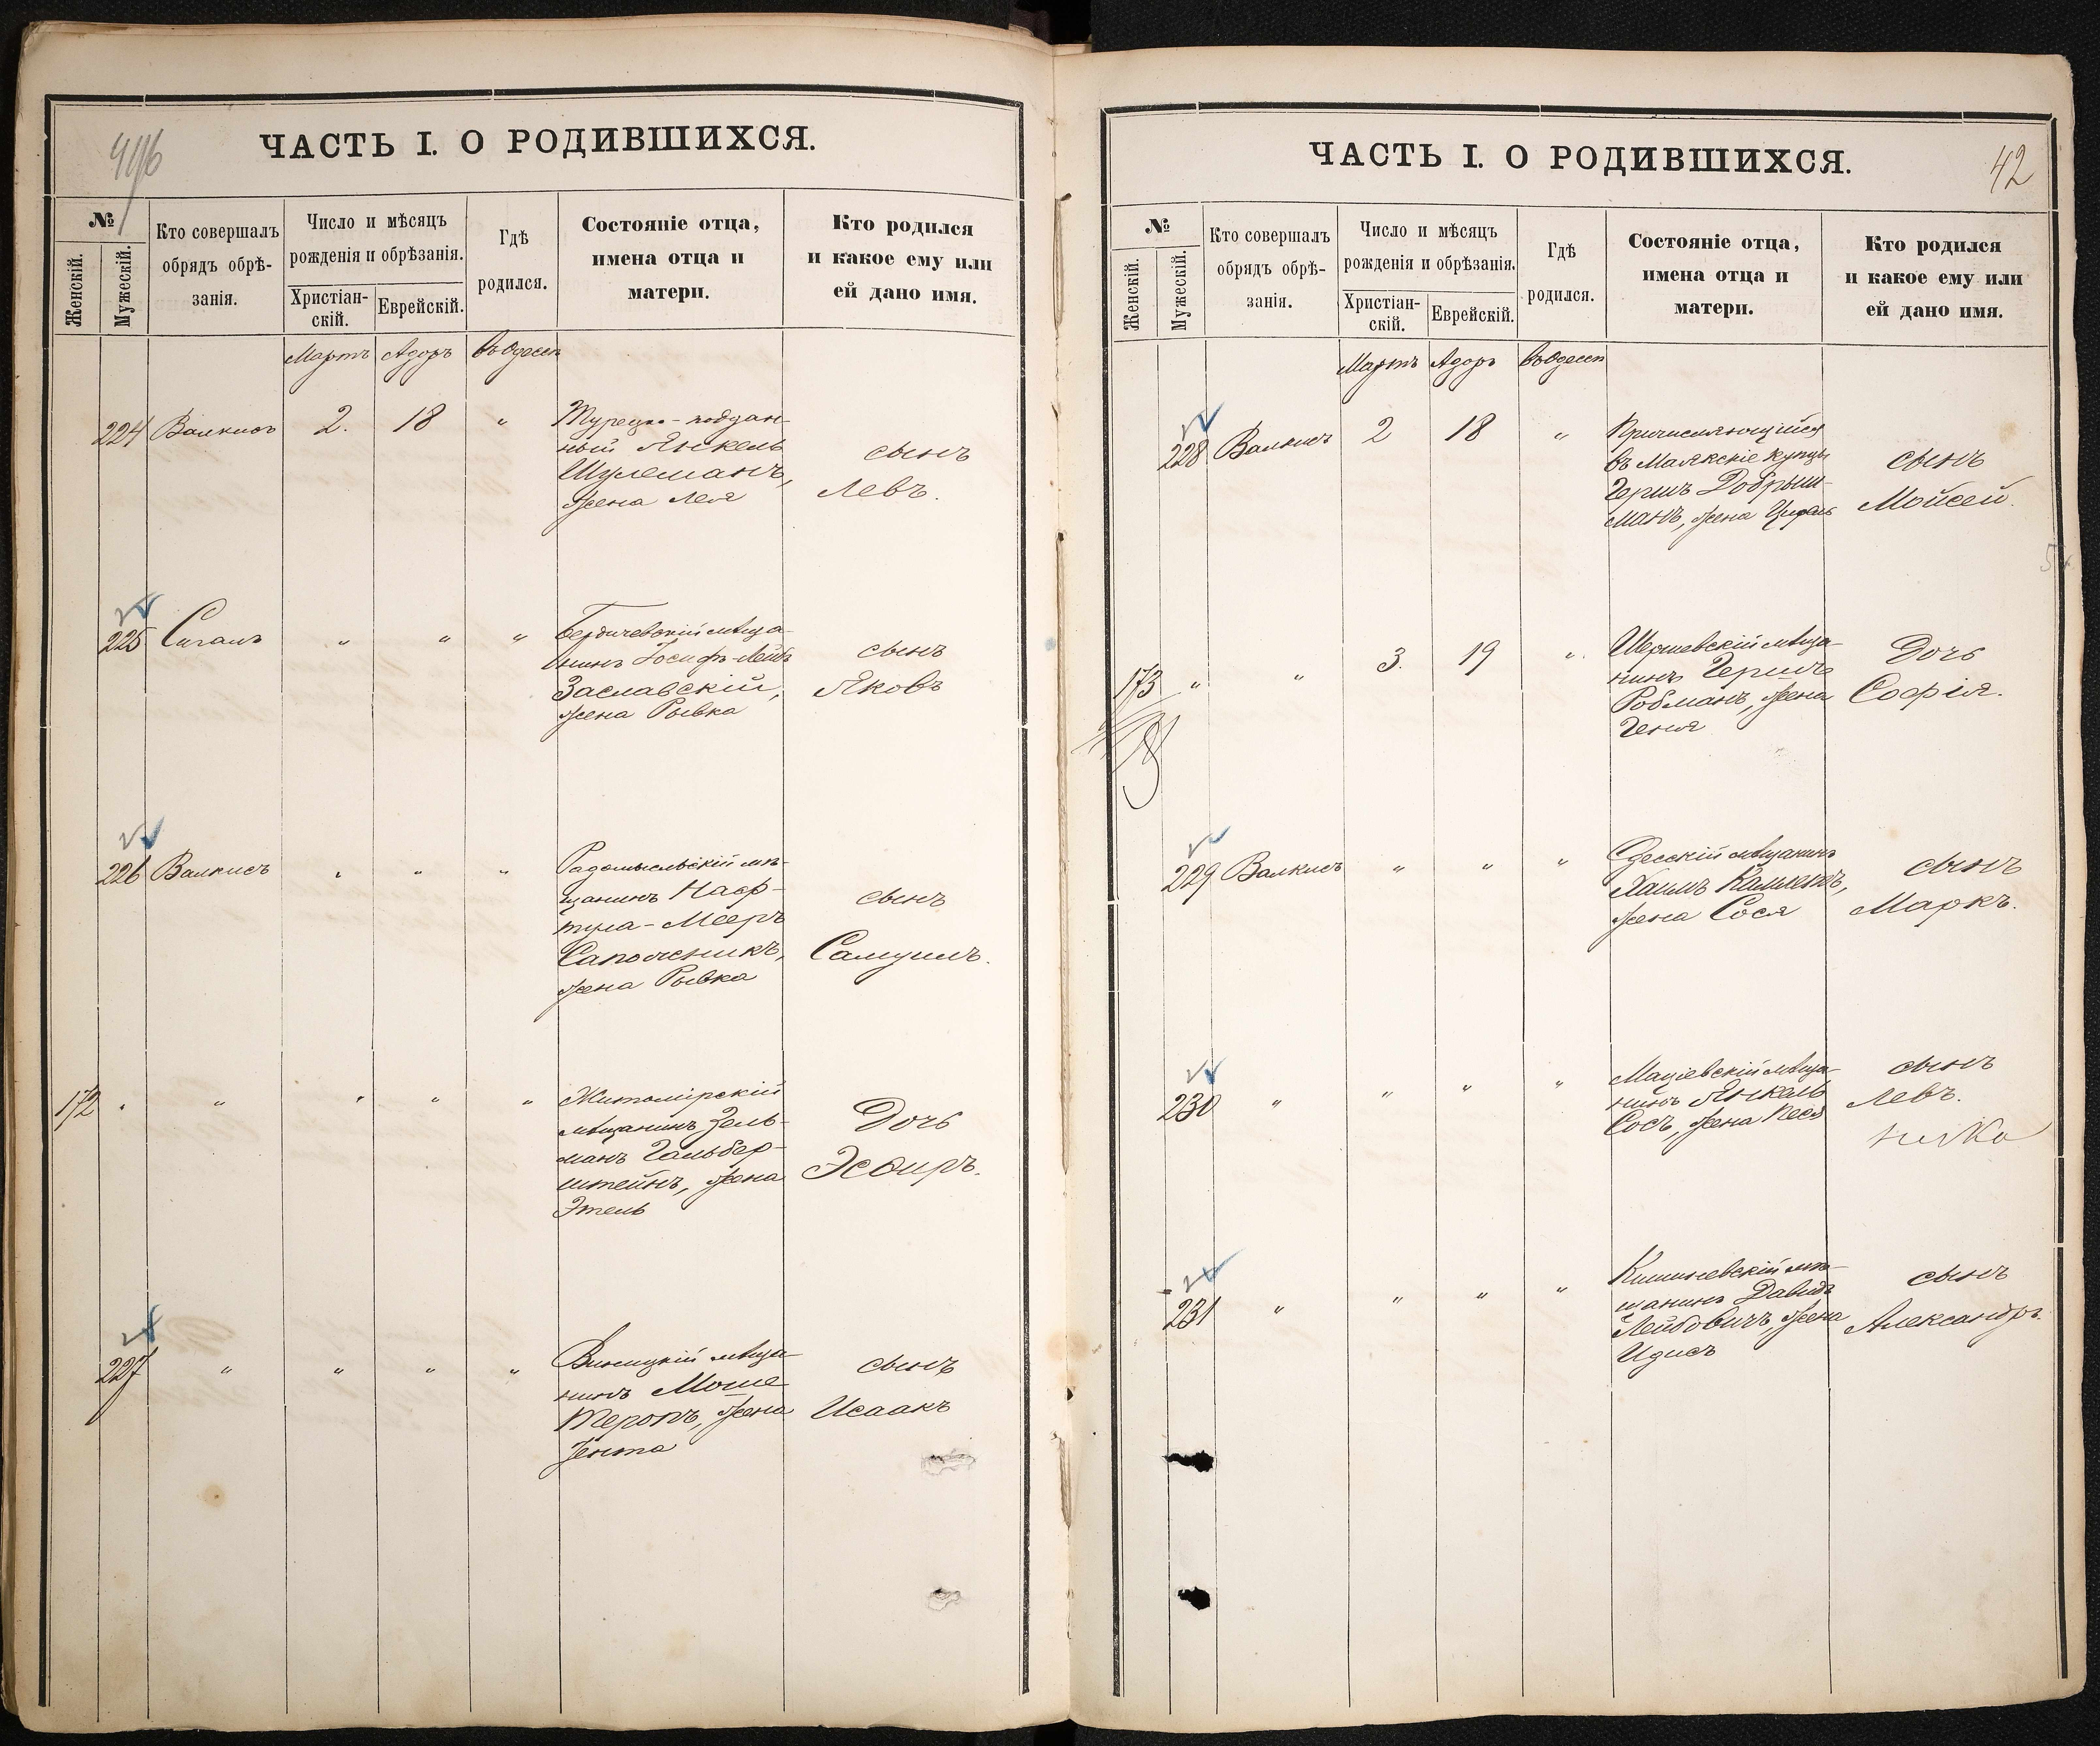 496
ЧАСТЬ I. О РОДИВШИХСЯ.
№
Женскій.
Мужескій.
Кто совершалъ
обрядъ обрѣ-
занія.
Число и мѣсяцъ
рожденія и обрѣзанія.
Христіан-
скій.
Еврейскій.
Гдѣ
родился.
Состояніе отца,
имена отца и
матери.
Кто родился
и какое ему или
ей дано имя.
Мартъ Адоръ въ Одессѣ
224 Валкисъ 2. 18 "
Турецко-поддан-
ный Янкель
Шулеманъ,
жена Лея
сынъ
Левъ.
225 Сигалъ " " "
Бердичевскій мѣща-
нинъ Іосифъ-Лейбъ
Заславскій,
жена Рывка
сынъ
Яковъ
226 Валкисъ " " "
Радомысльскій мѣ-
щанинъ Наф-
тула-Мееръ
Сапожникъ,
жена Рывка
сынъ
Самуилъ.
172 " " " " "
Житомірскій
мѣщанинъ Зель-
манъ Гальбер-
штейнъ, жена
Этель
Дочь
Эсѳирь.
227 " " " "
Винницкій мѣща-
нинъ Моше
Теропъ, жена
Ента
сынъ
Исаакъ
ЧАСТЬ I. О РОДИВШИХСЯ.
42
№
Женскій.
Мужескій.
Кто совершалъ
обрядъ обрѣ-
занія.
Число и мѣсяцъ
рожденія и обрѣзанія.
Христіан-
скій.
Еврейскій.
Гдѣ
родился.
Состояніе отца,
имена отца и
матери.
Кто родился
и какое ему или
ей дано имя.
Мартъ Адоръ въ Одессѣ
228 Валкисъ 2 18 "
Причисляющійся
въ Маякскіе купцы
Гершъ Добрыш-
манъ, жена
сынъ
Мойсей.
173 " " 3. 19 "
Шершевскій мѣща-
нинъ Гершъ
Робманъ, жена
Геня
Дочь
Софія.
229 Валкисъ " " "
Одесскій мѣщанинъ
Хаимъ
жена Сося
сынъ
Маркъ.
230 " " " "
Маціевскій мѣща-
нинъ Янкель
Сосъ, жена Песя
сынъ
Левъ.
231 " " " "
Кишиневскій мѣ-
щанинъ Давидъ
Лейбовичъ, жена
Идисъ
сынъ
Александръ.